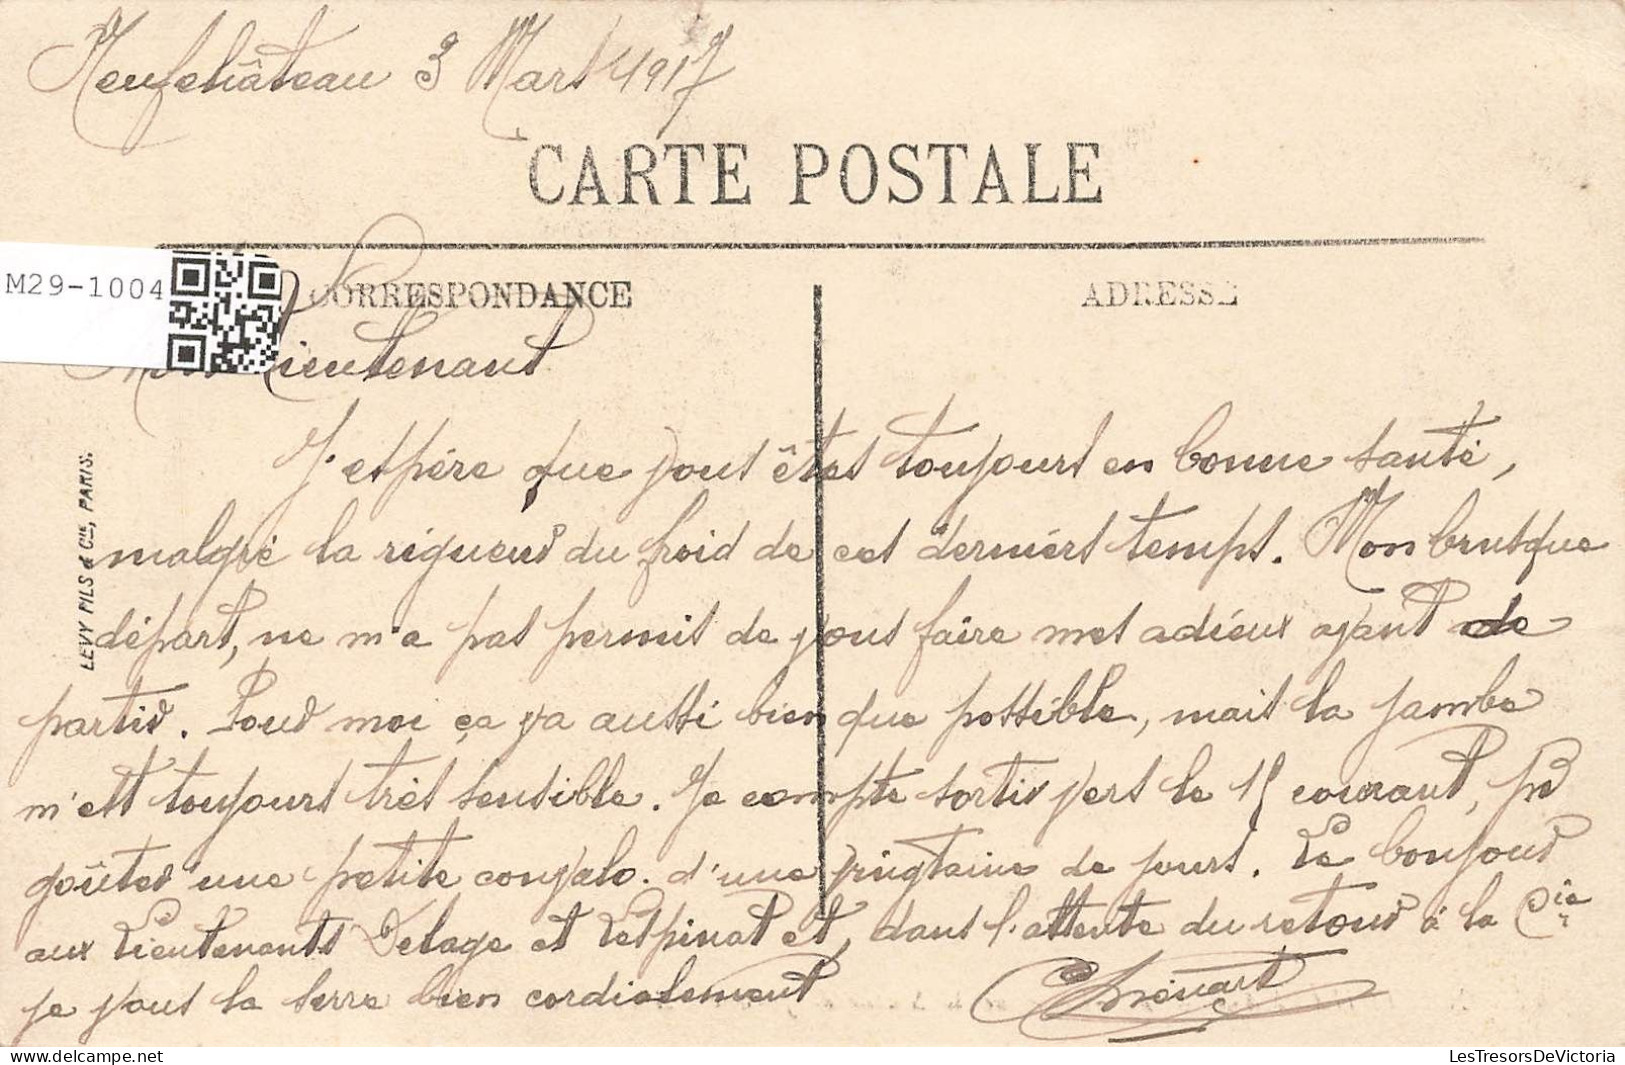 Neufchâteau 3 Mars 1917
CARTE POSTALE
M29-1004
CORRESPONDANCE
ADRESSE
Mon Lieutenant
J'espère que vous êtes toujours en bonne santé,
malgré la rigueur du froid de ces derniers temps. Mon brusque
départ, ne m'a pas permis de vous faire mes adieux ayant de
partir. Pour moi ça va aussi bien que possible, mais la jambe
m'est toujours très sensible. Je compte sortir vers le 15 courant, pr
goûter une petite convalo. d'une vingtaine de jours. Le bonjour
aux Lieutenants Delage et Lespinat et, dans l'attente du retour à la Cie
je vous la serre bien cordialement
LEVY FILS & Cie, PARIS.
LesTresorsDeVictoria